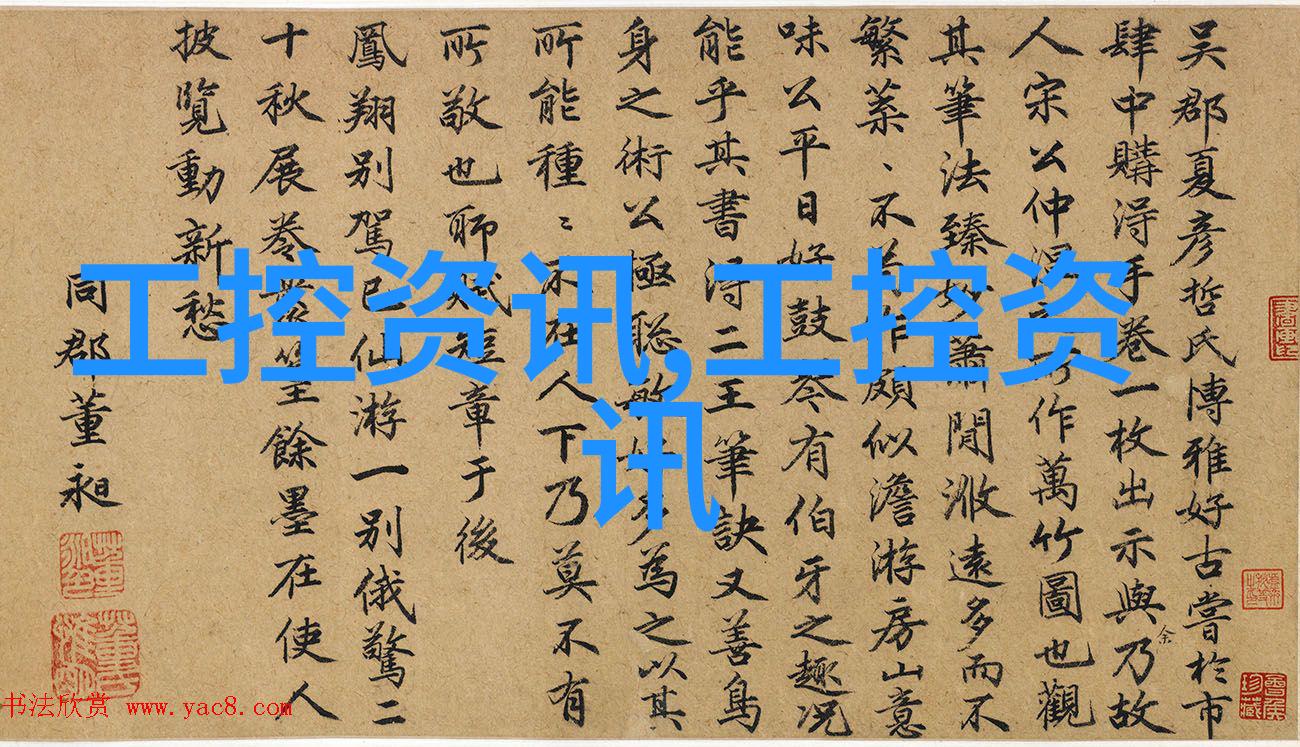 吴郡夏彦哲氏博雅好古嘗於市
肆中購淂手卷一枚出示與乃故
余
人宋公仲温作萬竹圖也觀
其筆法臻妙蕭閒遠多而不
繁、不作頗似澹游房山意
味公平日好鼓琴有伯牙之趣况
能乎其書淂二王筆訣又善鳥
身之術公極聡敏多為之以其
所能種〻不在人下乃莫不有
所敬也聊賦短章于後
鳳翔别駕已仙游一别俄驚二
十秋展卷餘墨在使人
披覽動新愁
同郡董昶
工控资讯,工控资
讯
书法欣赏 www.yac8.com